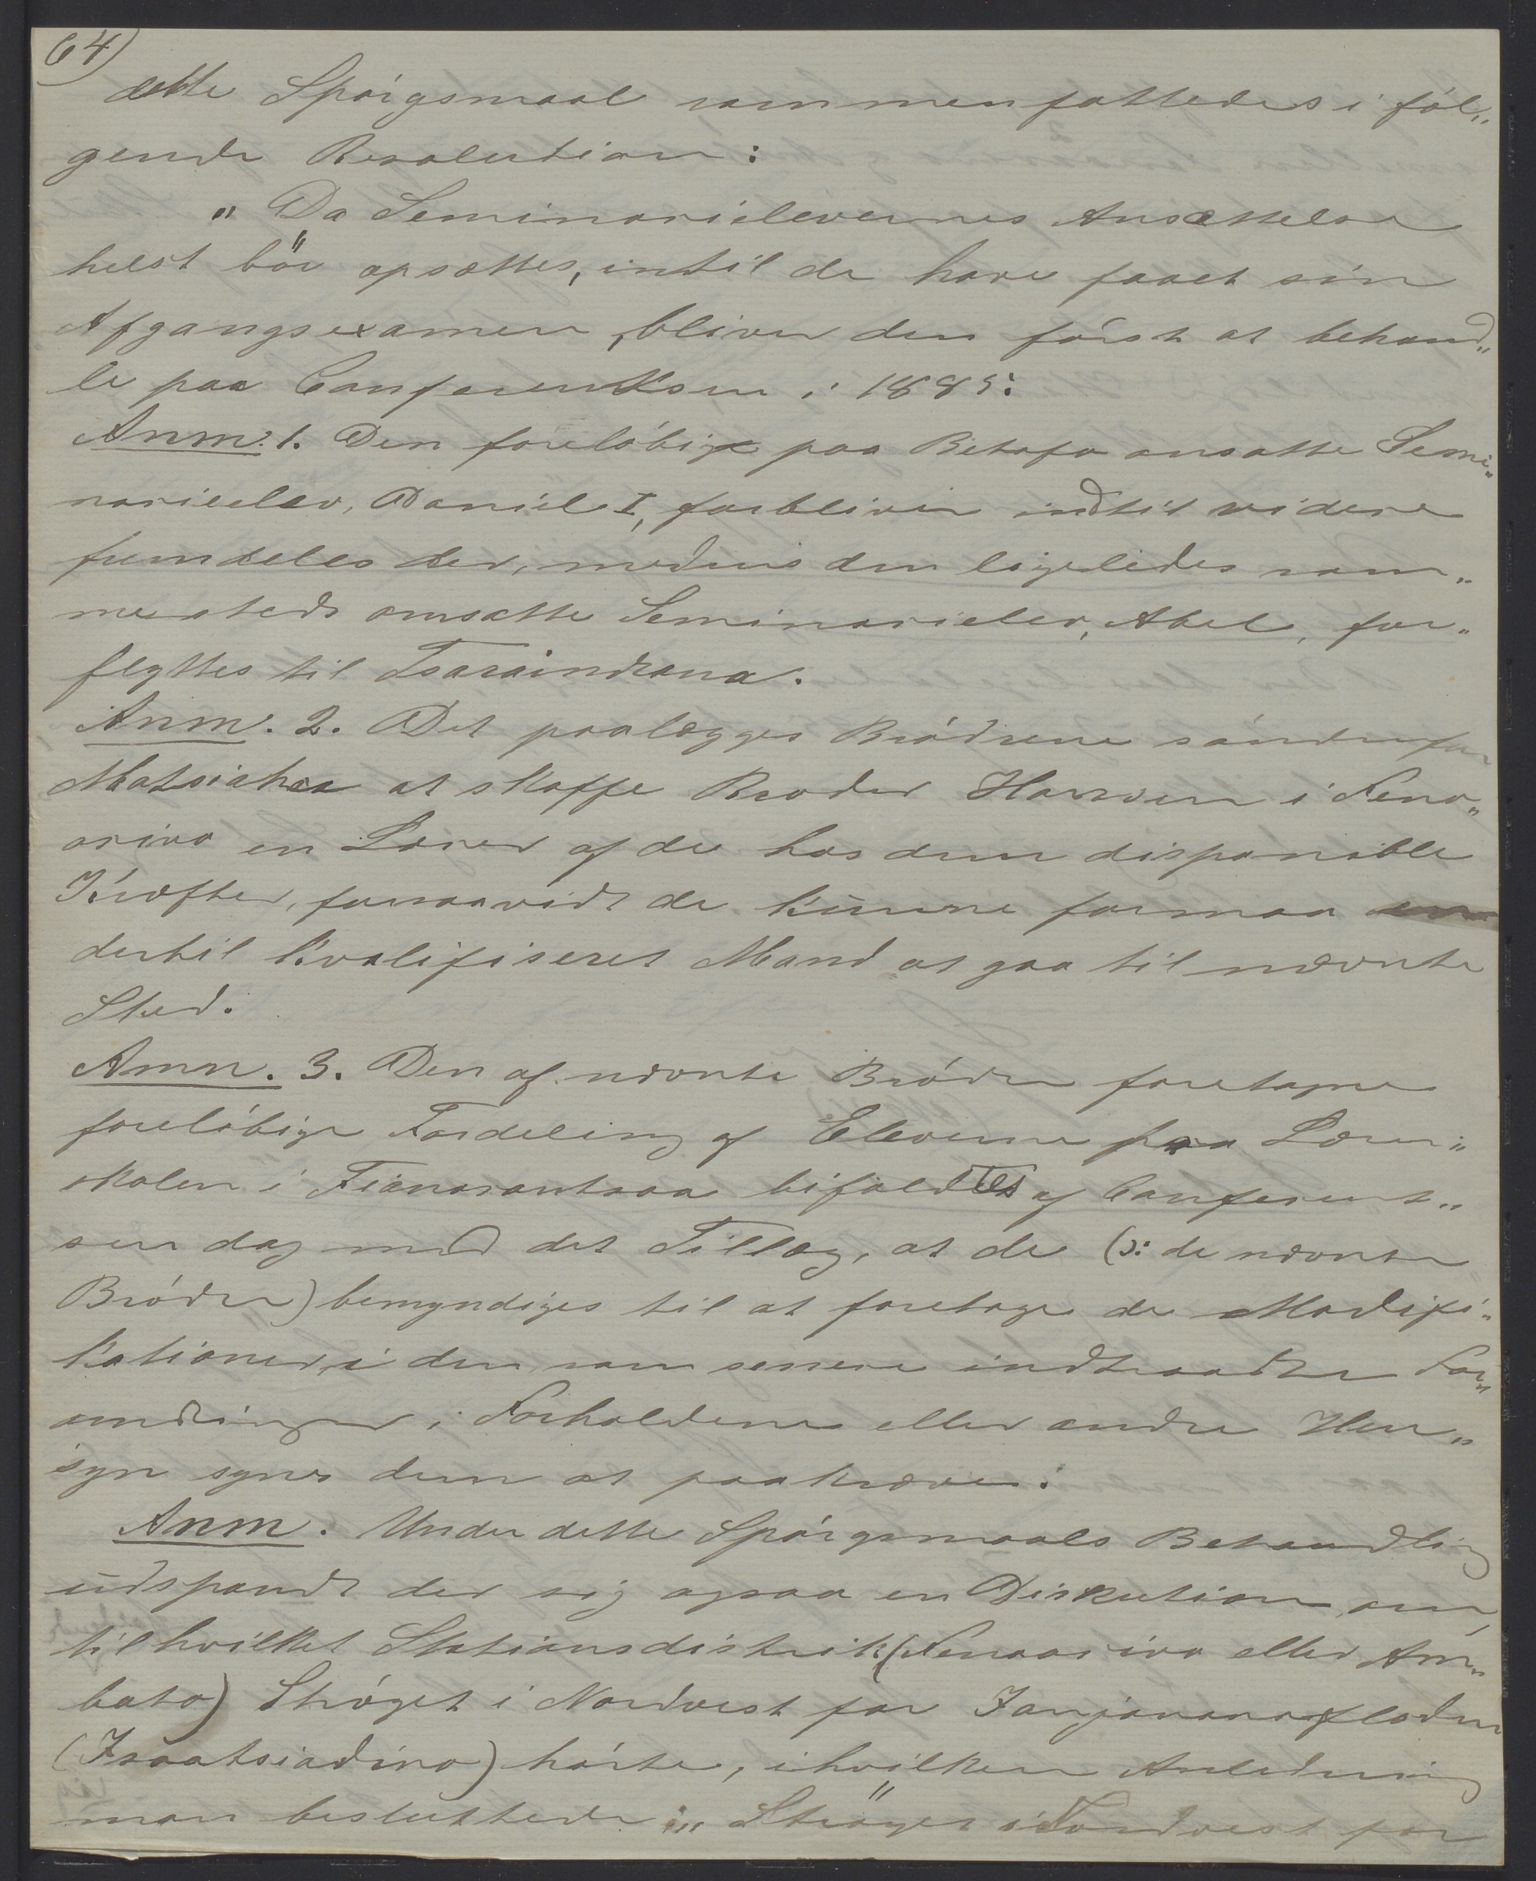 64)
dette Spørgsmaal sammenfattedes i føl„
gende Resolution:
„Da Seminarielevernes Ansættelse
helst bør opsættes, intil de have faaet sin
Afgangsexamen, bliver den først at behand„
le paa Conferentsen i 1885:
Anm. 1. Den foreløbig paa Betafo ansatte Semi„
narieelev, Daniel I, forbliver indtil videre
fremdeles der, medens den ligeledes sam„
mesteds ansatte Seminarielev, Abel, for„
flyttes til Tsaraindrana.
Anm. 2. Det paalægges Brødrene søndenfor
Matsiatra at skaffe Broder Haarven i Feno„
arivo en Lærer af de hos dem disponible
Kræfter, forsaavidt de kunne formaa en
dertil kvalifiseret Mand at gaa til nævnte
Sted.
Amn. 3. Den af nævnte Brødre foretagne
foreløbige Fordeling af Eleverne fra Lærer„
skolen i Fianarantsoa bifaldtes af Conferent„
sen dog med det Tillæg, at de (ɔ: de nævnte
Brødre) bemyndiges til at foretage de Modifi„
kationer i den som senere indtraadte For„
andringer i Forholdene eller andre Hen„
syn synes dem at paakræve.
Anm. Under dette Spørgsmaals Behandling
udspandt der sig ogsaa en Diskution om,
til hvilket Stationsdistrikt (Fenoarivo eller Am„
bato) Strøget i Nordvest for Fanjananafloden
(Isaatsiadivo) hørte, i hvilken Anledning
man besluttede: „Strøget i Nordvest for